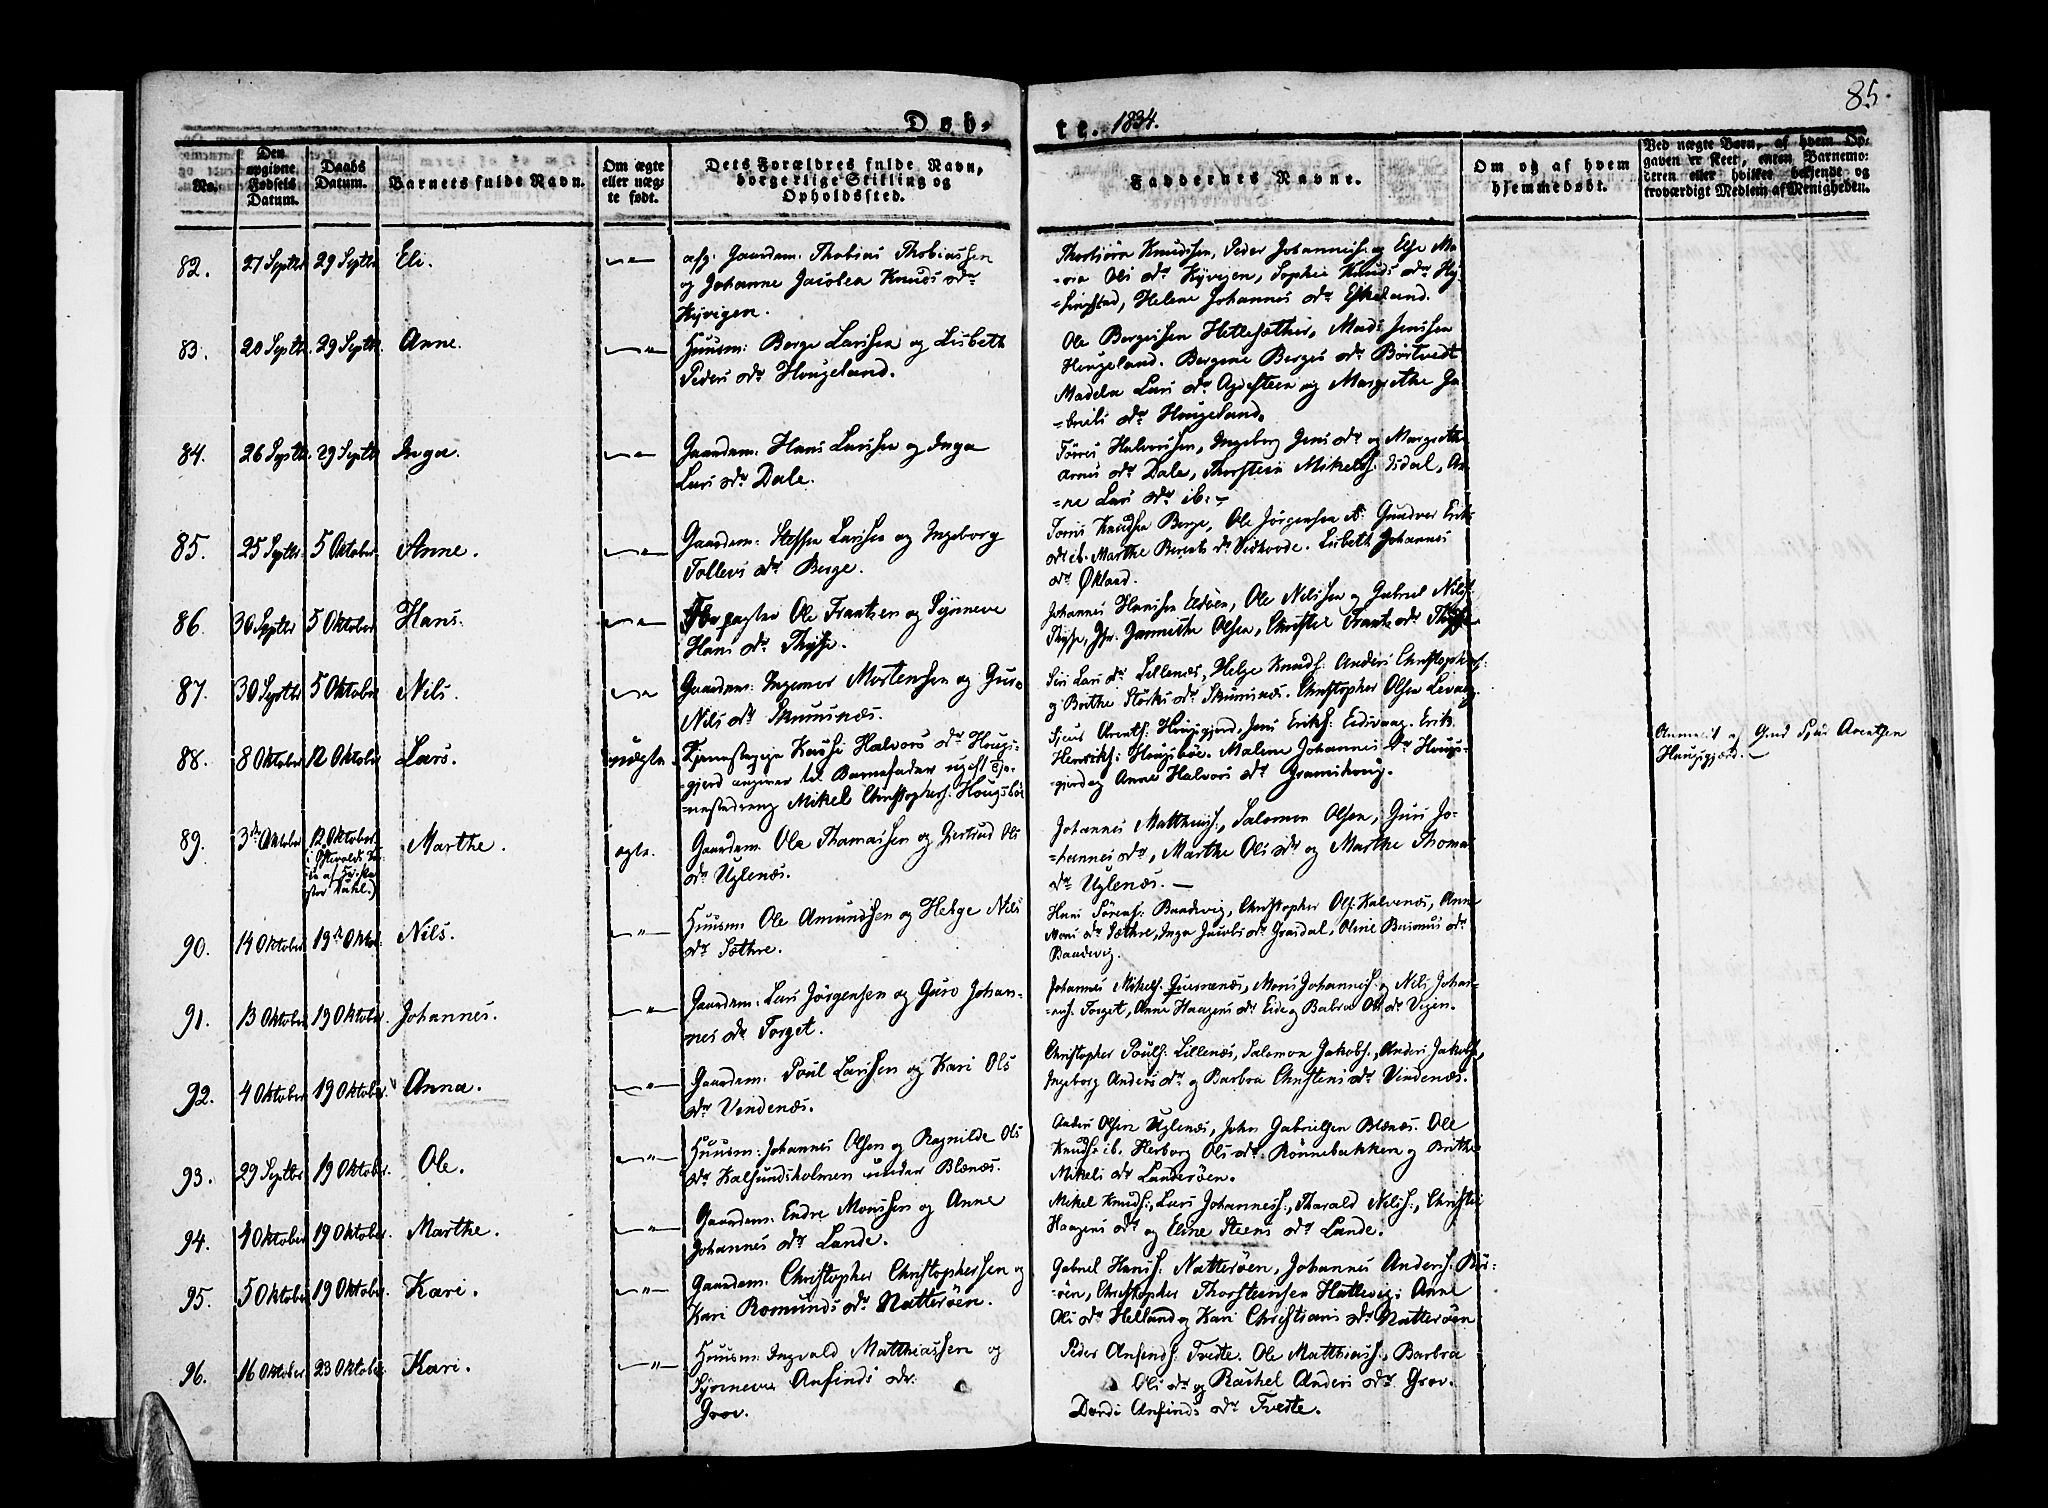 85.
Døb-
te. 1834.
No.
Den opgivne Fødsels Datum.
Daabs Datum.
Barnets fulde Navn.
Om ægte eller uægte født.
Dets Forældres fulde Navn, borgerlige Stilling og Opholdssted.
Faddernes Navne.
Om og af hvem hjemmedøbt.
Ved uægte Børn, af hvem Opgaven er skeet, enten Barnemoderen eller hvilket boesiende og troværdigt Medlem af Menigheden.
82. 27 Septbr 29 Septbr Eli.
afg. Gaardm: Thobias Thobiassen
og Johanne Jacobea Knuds dtr
Kyvigen.
Knudsen, Peder Johanness. og Else Ma-
=ria Ols dtr Kyvigen, Sophie Knuds dtr
Helene Johannes dtr Eskeland.
83. 20 Septbr. 29 Septbr. Anne.
Huusm: Børge Larssen og Lisbeth
Peders dtr Hougeland.
Ole Børgessen Hetlesæther, Mads Jenssen
Hougeland. Børgine Børges dtr Børtvedt
Lars dtr og Margrethe Ga-
=briels dtr Hougeland.
84. 26 Septbr. 29 Septbr Inga.
Gaardm: Hans Larssen og Inga
Lars dtr Dale.
Tørres Halvorssen, Ingeborg Jens dtr og Margrethe
dtr Dale, Thorstein Mikels: Isdal, An-
=ne Lars dtr ib: -
85. 25 Septbr. 5 Oktober. Anne.
Gaardm: Steffen Larssen og Ingeborg
Tollevs dtr Berge.
Knudsen Berge, Ole Jørgensen Gundver Eriks
dtr ib. Marthe Berents dtr Vedhovde. Lisbeth Johannes
dtr Økland.
86. 30 Septbr 5 Oktober Hans.
Ole Frantzen og Synneve
Hans dtr Thysse.
Johannes Hanssen Eldøen, Ole Nilssen og Gabriel Nils:
Thysse, Olsen, Christie Frantz dtr Thysse
87. 30 Septbr 5 Oktober Nils.
Gaardm: Ingemor Mortensen og Guro
Nils dtr Skumsnæs.
Siri Lars dtr Lillenæs, Helge Knuds: Anders Christophers:
og Brithe Størks dtr Skumsnæs. Christopher Olsen
88. 8 Oktober 12 Oktober Lars.
uægte.
Tjenestepige Halvors dtr Hougs-
=gjerd angiver til Barnefader ugift Tje-
=nestedreng Mikel Christophers: Hougsbøe
Sjeur Arents: Hougsgjerd, Jens Eriks: Eidsvaag. Erik
Henriks: Hougsbøe. Malene Johannes dtr Hougs-
=gjerd og Anne Halvors dtr
af Gmd Sjur Arentsen
Hougsgjærd. -
89. 3die Oktober 12 Oktober Marthe.
ægte.
Gaardm: Ole Thomassen og Gertrud Ols
dtr Uglenæs.
Johannes Matthiass:, Salomon Olsen, Guri Jo-
=hannes dtr, Marthe Ols dtr og Marthe Thomas
dtr Uglenæs. -
90. 14 Oktober 19de Oktob. Nils.
Huusm: Ole Amundsen og Helge Nils
dtr Sæthre.
Hans Baadvig, Christopher Ols: Kalvenæs, Anne
Mons dtr Sæthre, Inga Jacobs dtr Grasdal, Oline Rasmus dtr
Baadvig.
91. 13 Oktober 19 Oktober. Johannes.
Gaardm: Lars Jørgensen og Guro Johan-
nes dtr Torget.
Johannes Mikels: Mons Johanness: og Nils Johan-
=ness. Torget, Anne Haagens dtr Eide og Babra Ols dtr Vigen.
92. 4 Oktober 19 Oktober. Anna.
Gaardm: Poul Larssen og Kari Ols
dtr Vindenæs.
Christopher Pouls: Lillenæs, Salomon Jakobs:, Anders Jakobs:,
Ingeborg Anders dtr og Barbra Christens dtr Vindenæs.
93. 29 Septbr. 19 Oktober. Ole.
Huusm: Johannes Olsen og Ragnilde Ols
dtr Kalsundsholmen under Blænæs.
Anders Olsen Uglenæs, John Gabrielsen Blænæs. Ole
Knuds: ib. Herborg Ols dtr: Rønnebakken og Brithe
Mikels dtr Landerøen.
94. 4 Oktober 19 Oktober. Marthe.
Gaardm: Endre Monssen og Anne
Johannes dtr Lande.
Mikel Knuds:, Lars Johanness:, Tharald Nilss:, Christie
Haagens dtr og Eline Steens dtr Lande.
95. 5 Oktober 19 Oktober. Kari.
Gaardm: Christopher Christophersen og
Kari Romunds dtr Natterøen.
Gabriel Hanss: Natterøen, Johannes Anders:
=øen, Christopher Thorsteinsen Hattevig. Anne
Ols dtr Helland og Kari Christians dtr Natterøen
96. 16 Oktober 23 Oktober. Kari.
Huusm: Ingvald Matthiassen og
Synneve Anfinds dtr:
Grov.
Peder Anfinds: Tveite. Ole Matthiass:, Barbra
Ols dtr og Rachel Anders dtr Grov.
Dordi Anfinds dtr Tveite.